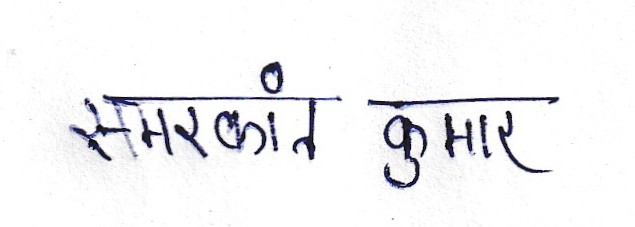 समरकांत कुमार